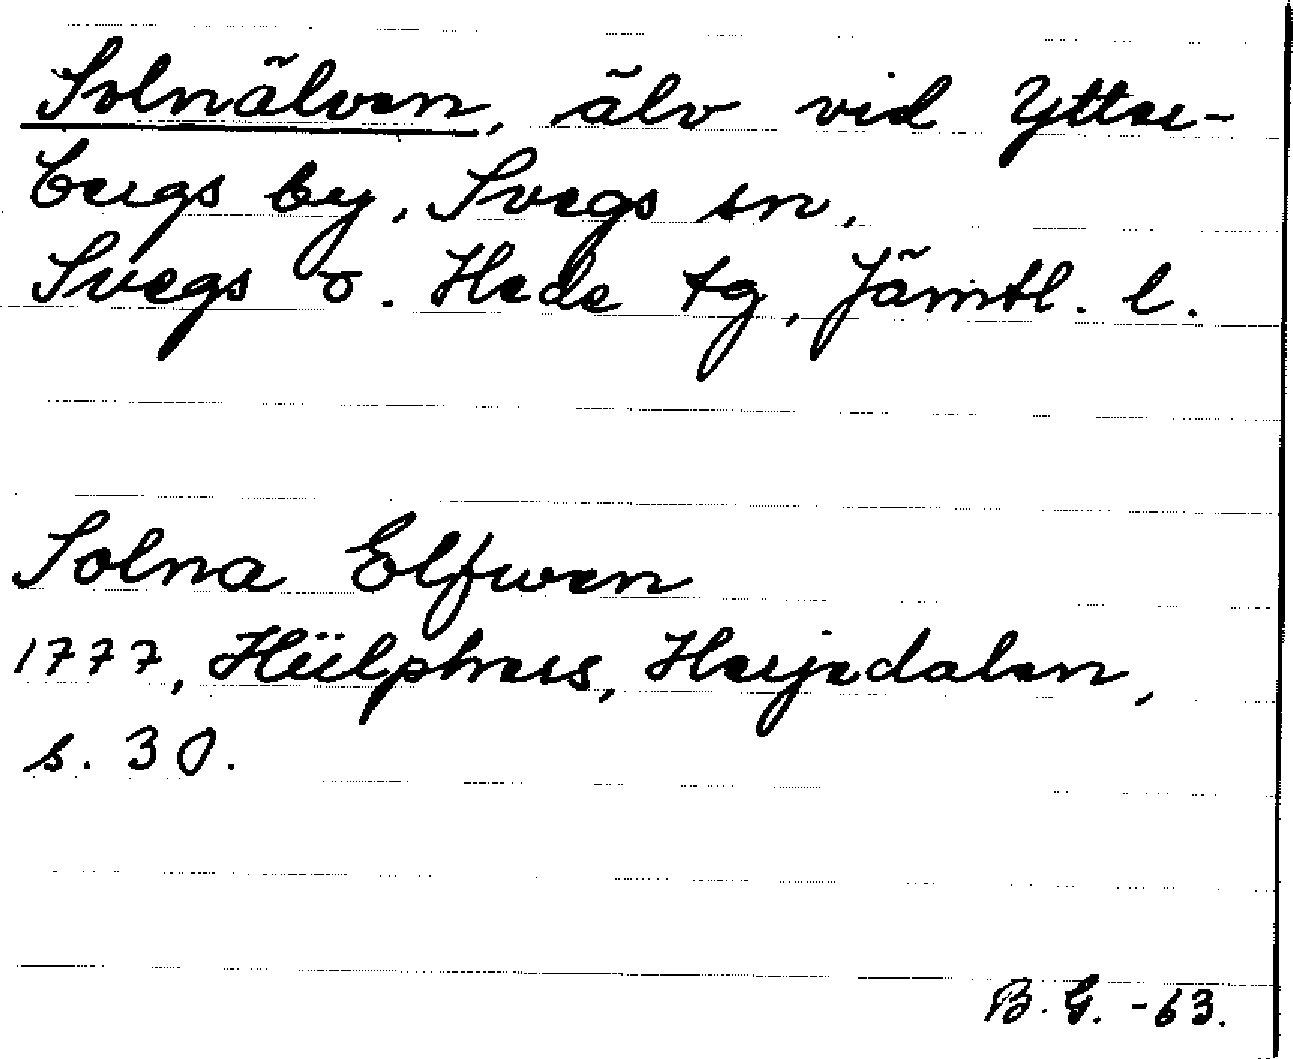 Solnälven, älv vid Ytter-
bergs by, Svegs sn,
Svegs o. Hede tg, Jämtl. l.
Solna Elfwen
1777, Hülphers, Herjedalen,
s. 30.
B. G. -63.